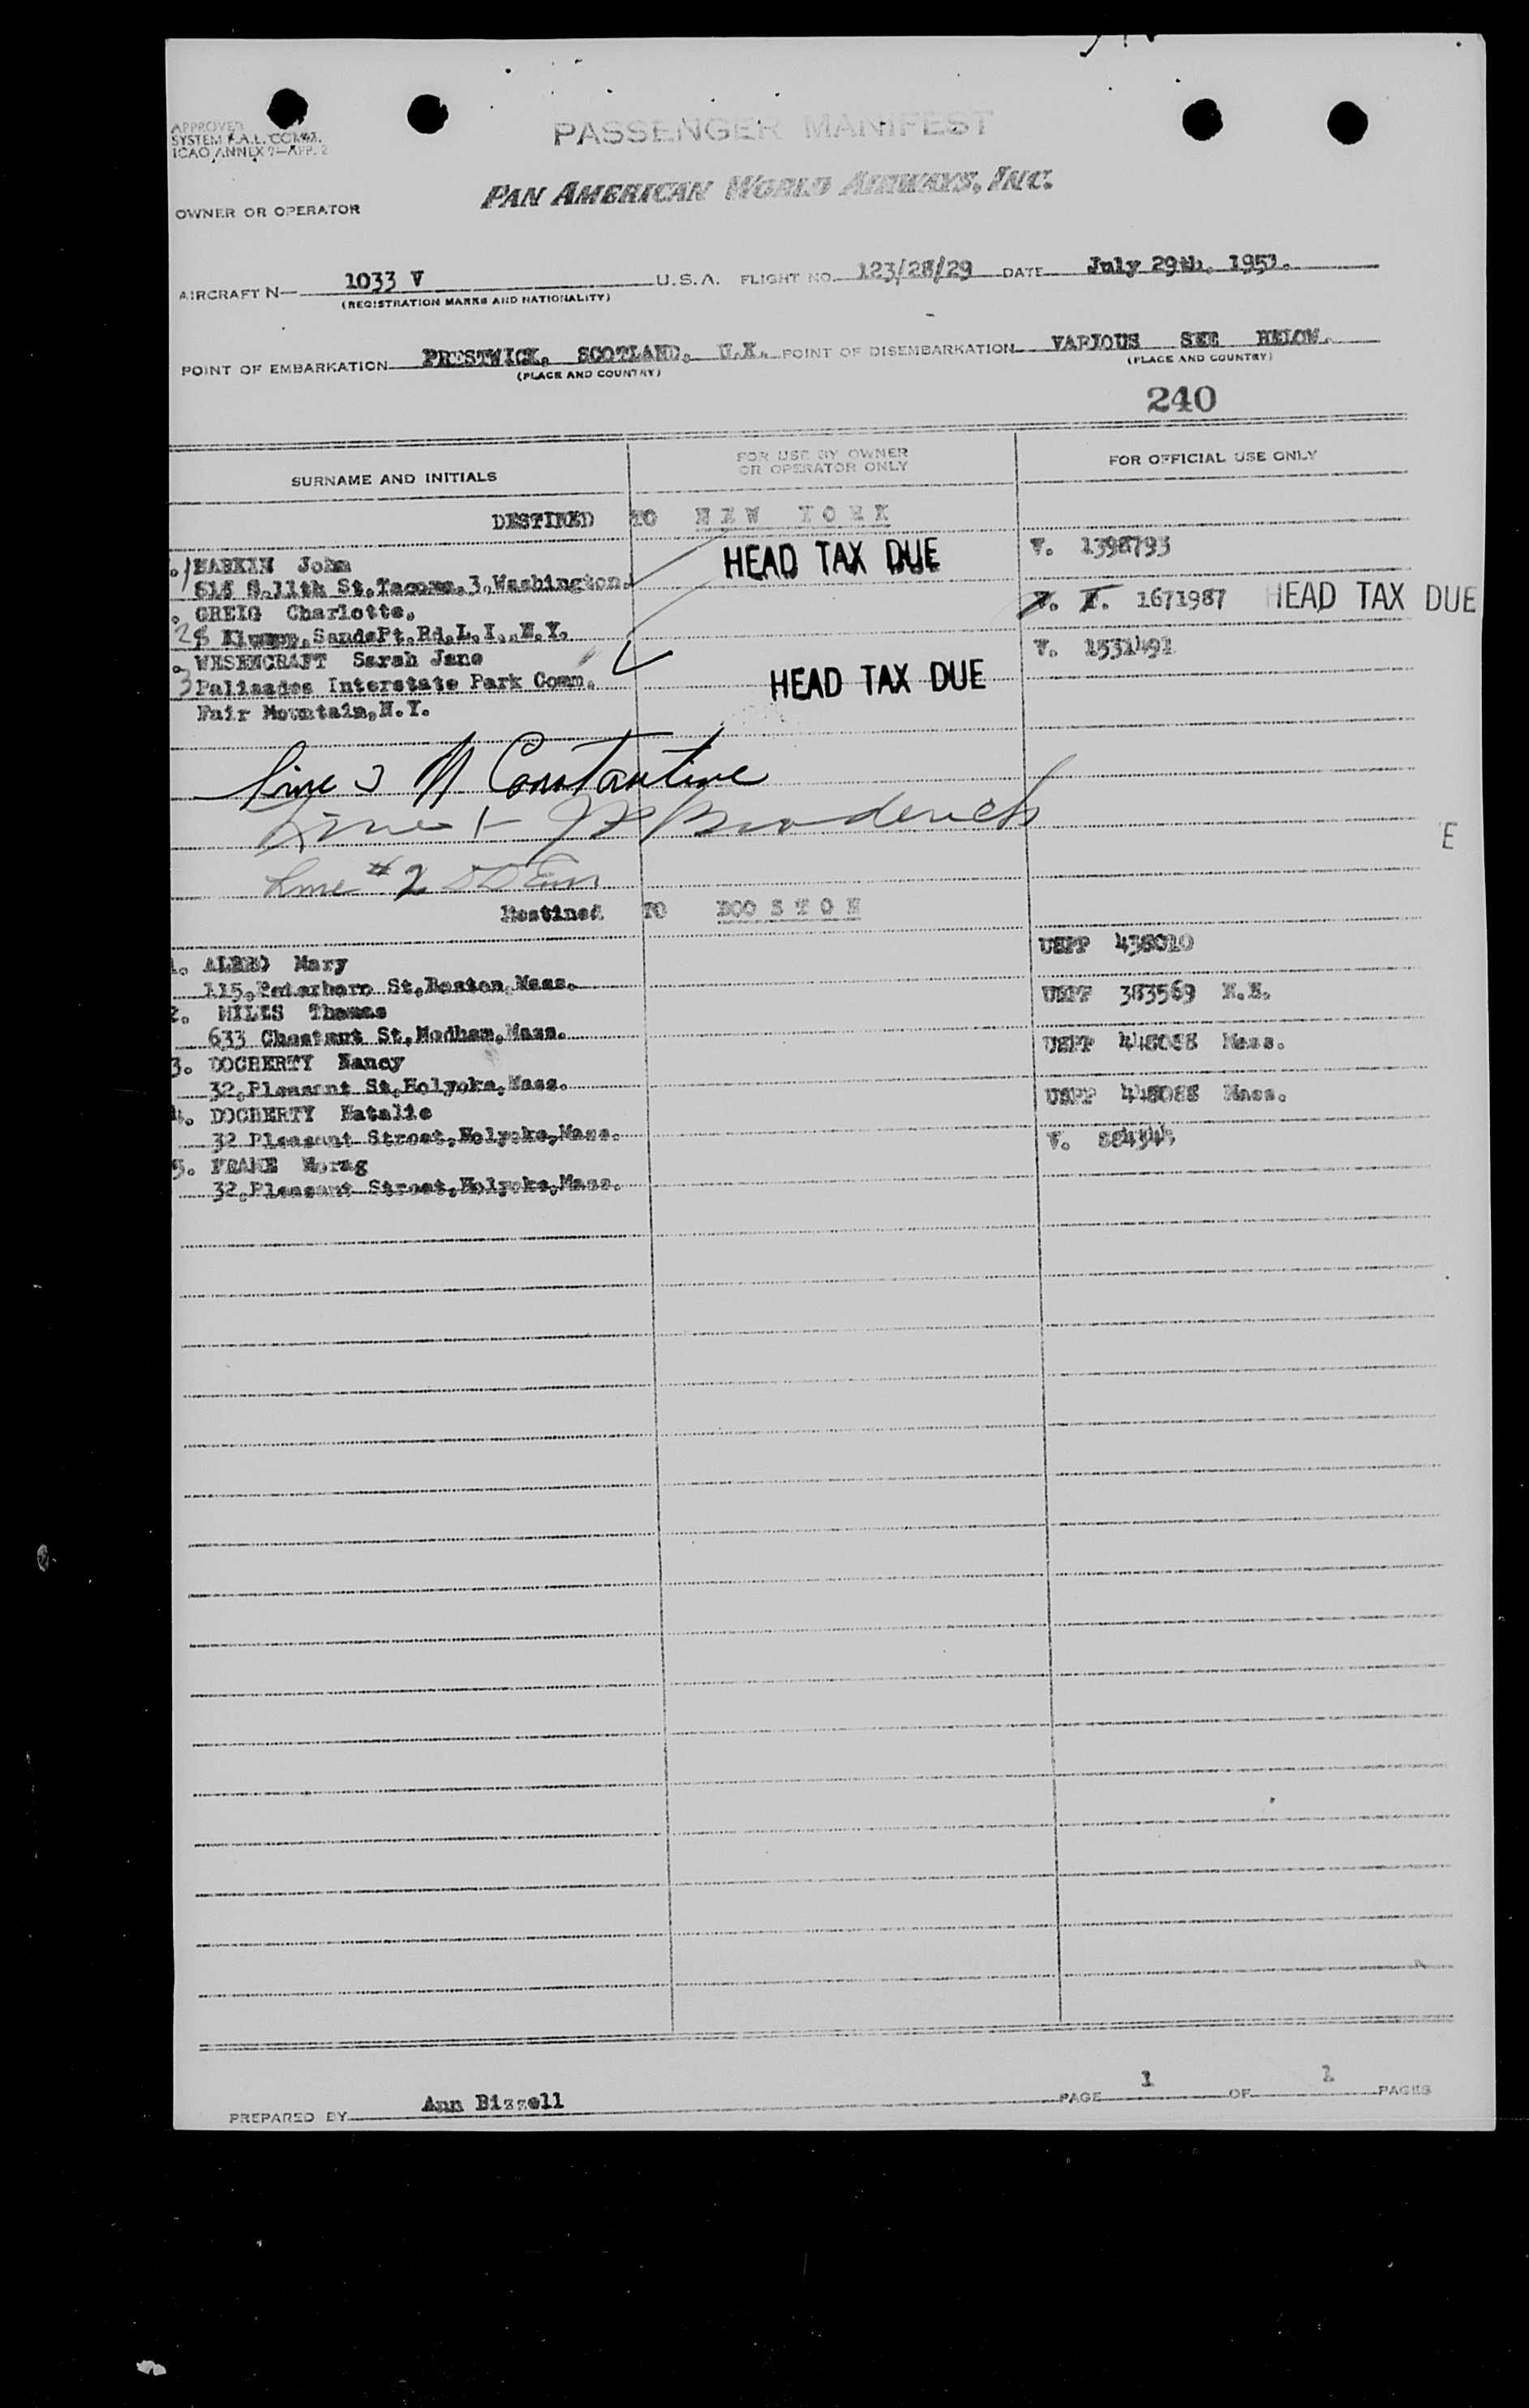 APPROVED
SYSTEM F.A.L. COMM.
ICAO ANNEX 9—APP. 2
PASSENGER MANIFEST
PAN AMERICAN WORLD AIRWAYS, INC.
OWNER OR OPERATOR
AIRCRAFT N— 1033 V U.S.A. FLIGHT NO. 123/28/29 DATE July 29th. 1953.
(REGISTRATION MARKS AND NATIONALITY)
POINT OF EMBARKATION PRESTWICK, SCOTLAND, U.K. POINT OF DISEMBARKATION VARIOUS SEE BELOW.
(PLACE AND COUNTRY) (PLACE AND COUNTRY)
240
SURNAME AND INITIALS FOR USE BY OWNER OR OPERATOR ONLY FOR OFFICIAL USE ONLY
DESTINED TO N E W Y O R K
1 John HEAD TAX DUE V. 1398793
S.11th St.Tacoma.3.Washington.
2 GREIG Charlotte. 1671987 HEAD TAX DUE
Sands Pt.Rd.L.I.,N.Y.
3 WESENCRAFT Sarah Jane V. 1531491
Palisades Interstate Park Comm. HEAD TAX DUE
Fair Mountain,N.Y.
Line 3 N Constantine
Line 1 - Broderick
Line #2
E
Destined TO BOO S T O N
1. Mary USPP 438010
115,Peterboro St,Boston,Mass.
2. Thomas USPP 383569 N.E.
633 Chestnut St,Nedham,Mass.
3. DOCHERTY Nancy USPP Mass.
32,Pleasant St,Holyoke,Mass.
4. DOCHERTY Natalie USPP 448088 Mass.
32 Pleasant Street,Holyoke,Mass.
5. FRAME Morag V.
32,Pleasant Street,Holyoke,Mass.
PREPARED BY Ann Bizzell PAGE 1 OF 1 PAGES